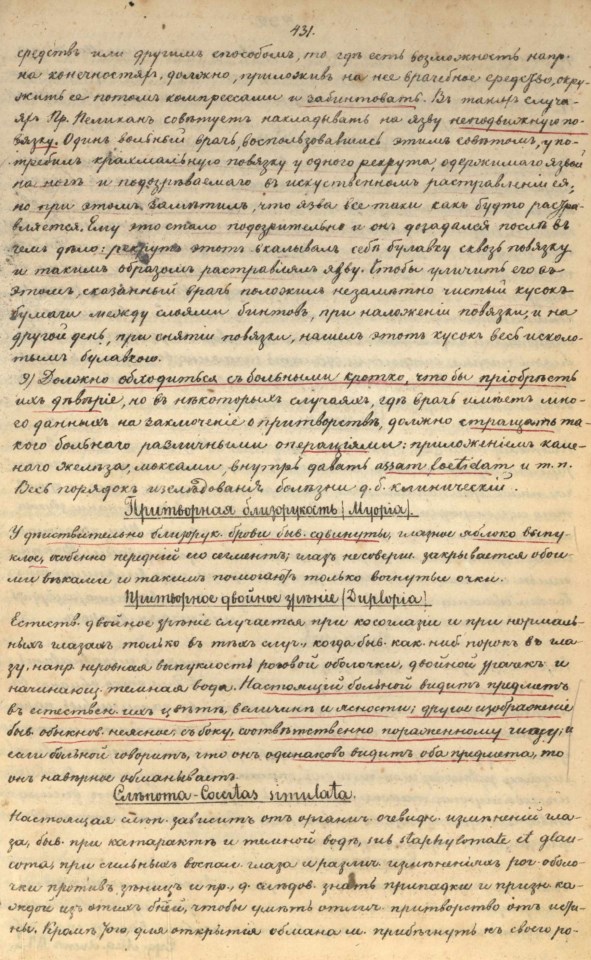 431.
средствъ или другимъ способомъ, то гдѣ есть возможность напр.
на конечностяхъ, должно, приложивъ на нее врачебное средство, окру-
жить ее потомъ компрессами и забинтовать. Въ такихъ случа-
яхъ Пр. Пеликанъ совѣтуетъ накладывать на язву неподвижную по-
вязку. Одинъ вольный врачь, воспользовавшись этимъ совѣтомъ, упо-
требилъ крахмальную повязку у одного рекрута, одержимаго язвой
на ногѣ и подозрѣваемаго въ искуственномъ растравленіи ея,
но при этомъ замѣтилъ, что язва все таки какъ будто растра-
вляется. Ему это стало подозрительно и онъ дозадался послѣ въ
чемъ дѣло: рекрутъ этотъ вкалывалъ себѣ булавку сквозь повязку
и такимъ образомъ растравлялъ язву. Чтобы уличить его въ
этомъ, сказанный врачь положилъ незамѣтно чистый кусокъ
бумаги между слоями бинтовъ, при наложеніи повязки, и на
другой день, при снятіи повязки, нашелъ этотъ кусокъ весь исколо-
тымъ булавкою.
9) Должно обходиться съ больными кротко, чтобы пріобрѣсть
ихъ довѣріе, но въ нѣкоторыхъ случаяхъ, гдѣ врачь имѣетъ мно-
го данныхъ на заключеніе о притворствѣ, должно стращать та-
кого больнаго различными операціями: приложеніемъ кале-
наго желѣза, моксами, внутрь давать assam foetidam и т. п.
Весь порядокъ изслѣдованія болѣзни д. б. клиническій.
Притворная близорукость (Myopia).
У дѣйствительно близрук. брови быв. сдвинуты, глазное яблоко выпу-
клое, особенно передній его сегментъ; глазъ несоверш. закрывается обои-
ми вѣками и такимъ помогаютъ только вогнутые очки.
Притворное двойное зрѣніе (Duplopia)
Естеств. двойное зрѣніе случается при косоглазіи и при нормаль-
ныхъ глазахъ только въ тѣхъ случ., когда быв. как. ниб. порокъ въ гла-
зу, напр. неровная выпуклость роговой оболочки, двойной зрачекъ и
начинающ. темная вода. Настоящій больной видитъ предметъ
въ естествен. ихъ цвѣтѣ, величинѣ и ясности; другое изображеніе
быв. обыкнов. неясное, съ боку, соотвѣтственно пораженному глазу; и
если больной говоритъ, что онъ одинаково видитъ оба предмета, то
онъ навѣрное обманываетъ.
Слѣпота - Cocitas simulata.
Настоящая слѣп. зависитъ отъ органич. очевидн. измѣненій гла-
за, быв. при катарактѣ и темной водѣ, sub staphylomate et glau-
coma, при сильныхъ воспал. глаза и различ. измѣненіяхъ рог. оболо-
чки противъ зѣницъ и пр., д. слѣдов. знать припадки и признк. ка-
ждой изъ этихъ бней, чтобы умѣть отлич. притворство отъ исти-
ны. Кромѣ того, для открытія обмана м. прибѣгнуть къ своего ро-